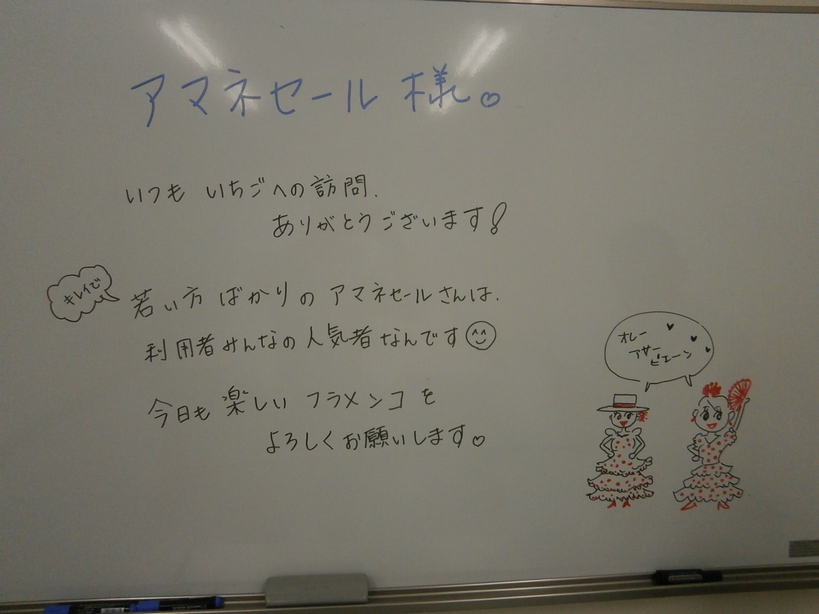 アマネセール 様。
いつも いちごへの訪問、
ありがとうございます!
キレイで
若い方ばかりの アマネセールさんは、
利用者みんなの人気者なんです
今日も 楽しい フラメンコ を
よろしくお願いします
オレー
アサー
ビエーン